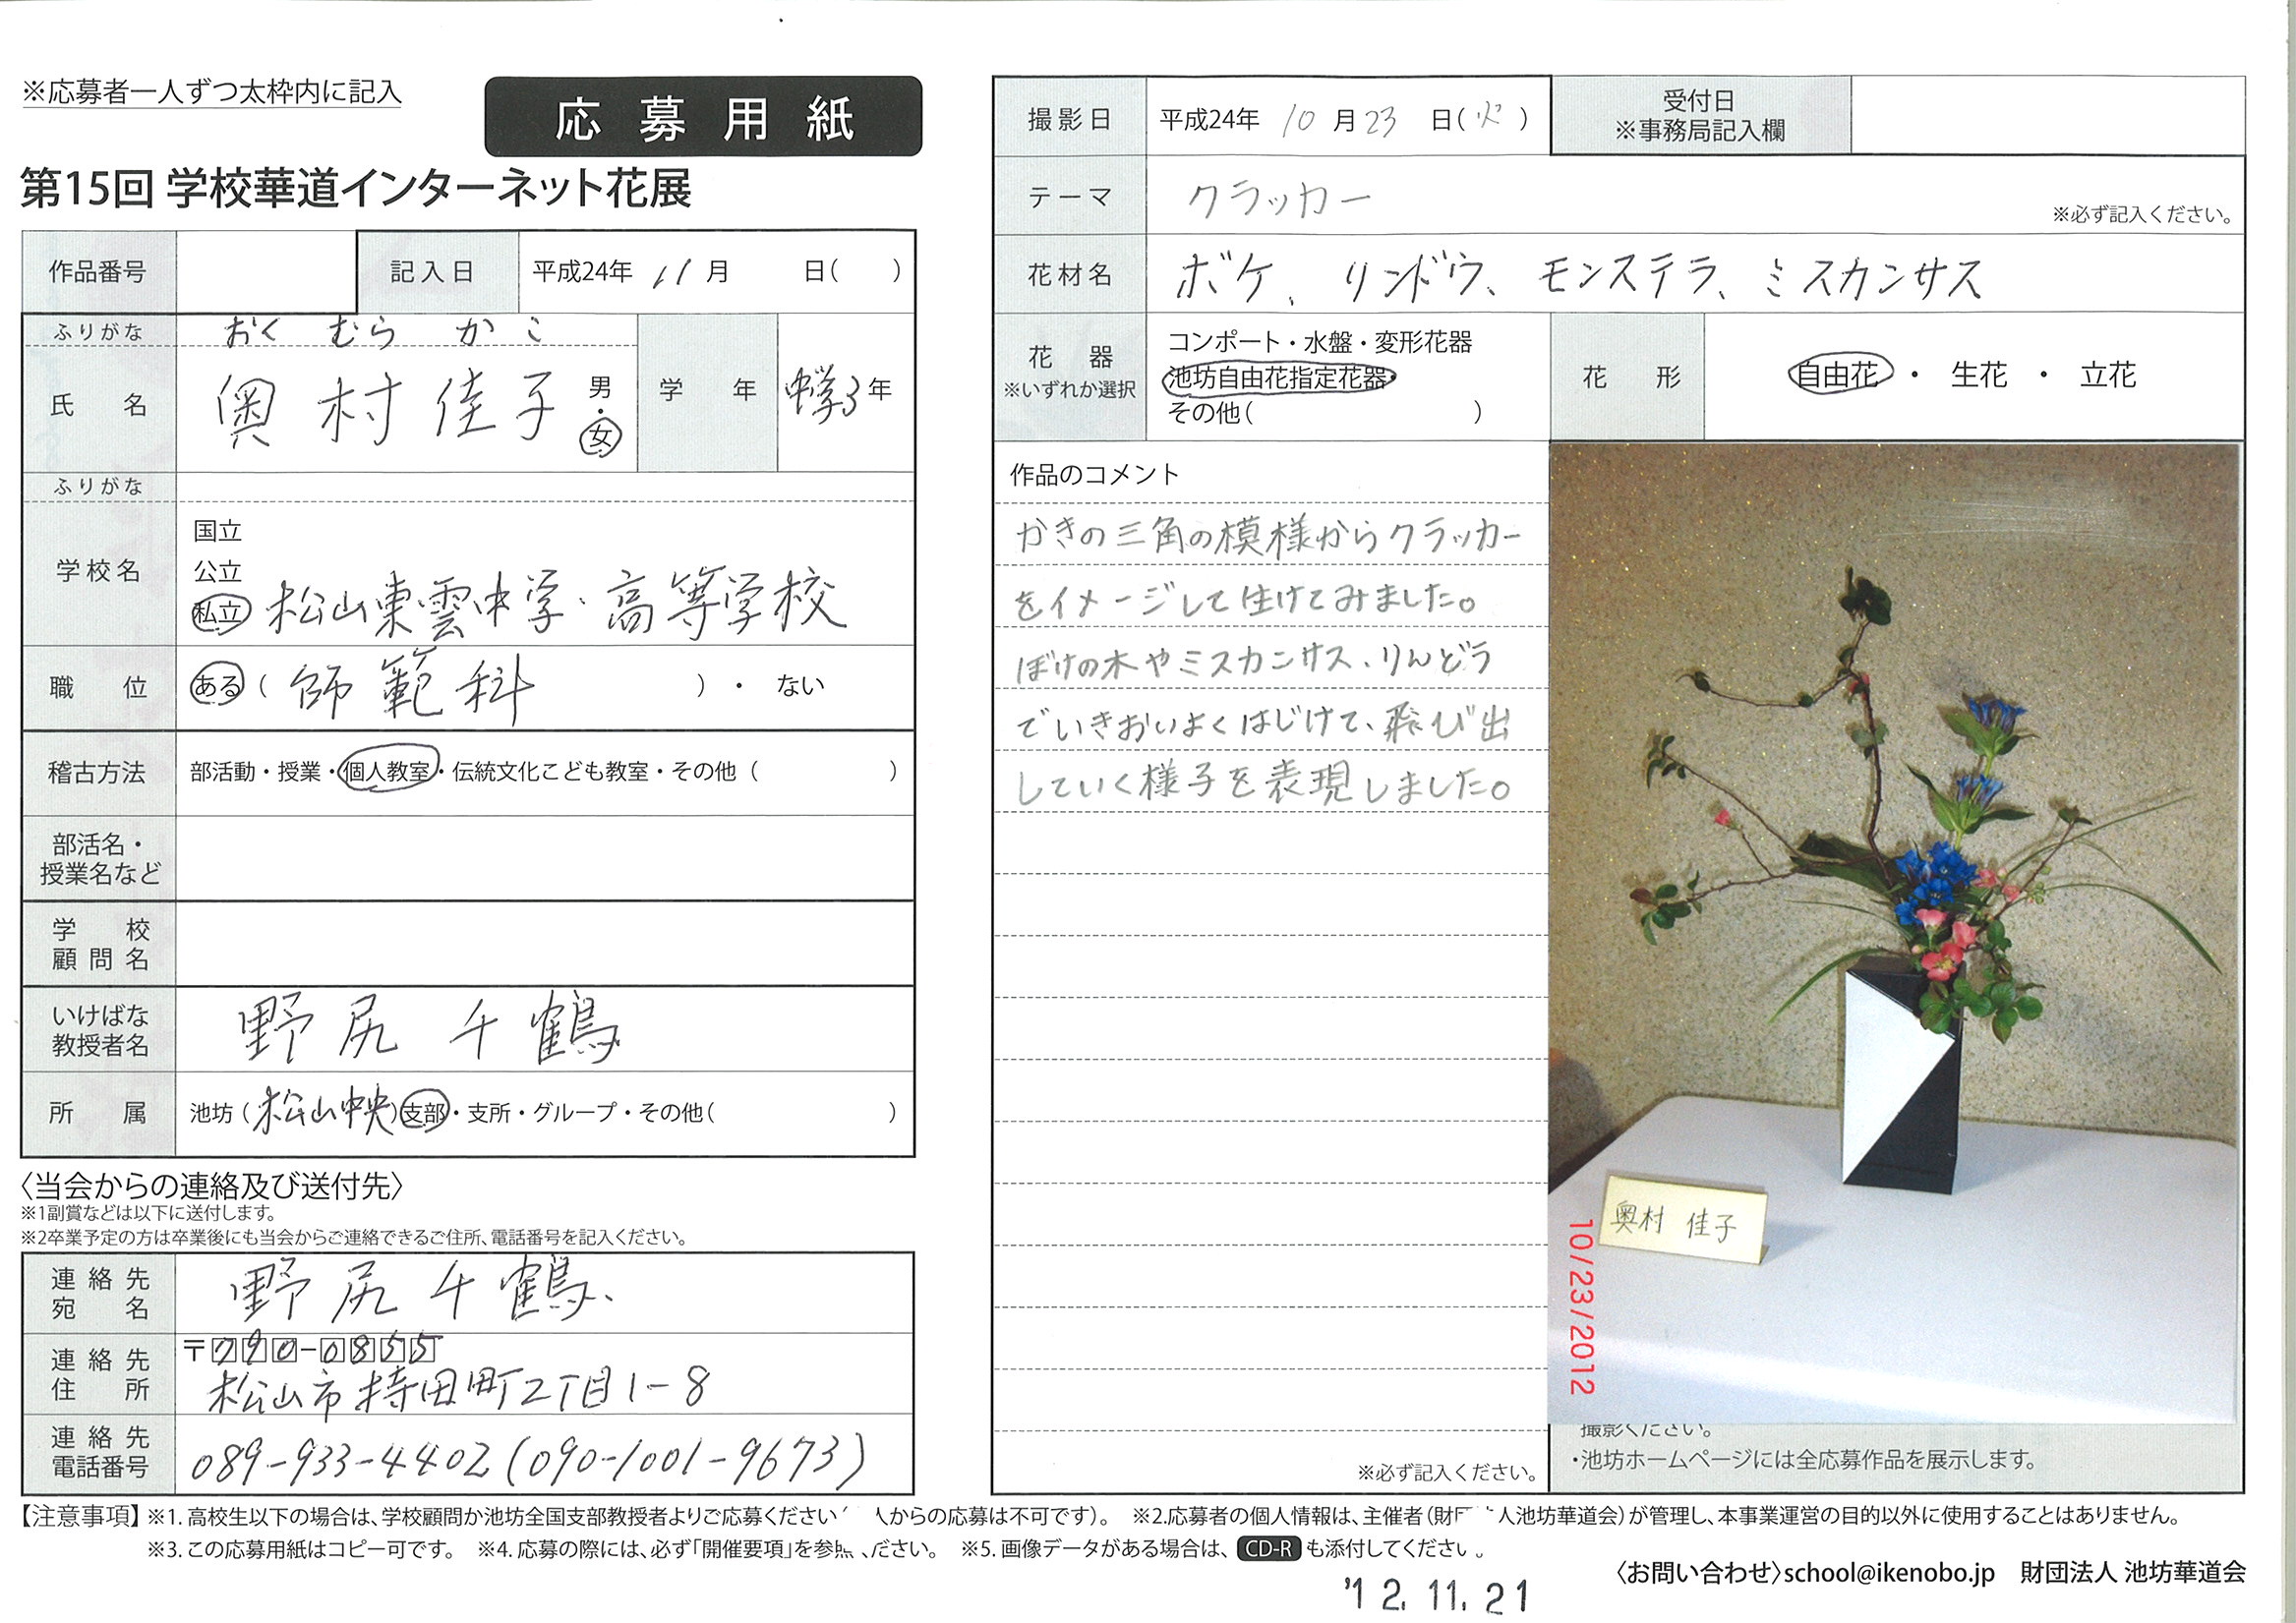 ※応募者一人ずつ太枠内に記入
応募用紙
第15回 学校華道インターネット花展
作品番号 記入日 平成24年 11月 日( )
ふりがな おく むら か こ
氏名 奥村佳子 男・女 学年 中学3年
ふりがな
学校名 国立
公立
私立 松山東雲中学・高等学校
職位 ある( 師範科 )・ ない
稽古方法 部活動・授業・個人教室・伝統文化こども教室・その他( )
部活名・
授業名など
学校
顧問名
いけばな
教授者名 野尻 千鶴
所属 池坊(松山中央)支部・支所・グループ・その他( )
〈当会からの連絡及び送付先〉
※1副賞などは以下に送付します。
※2卒業予定の方は卒業後にも当会からご連絡できるご住所、電話番号を記入ください。
連絡先
宛名 野尻 千鶴
連絡先
住所 〒790-0855
松山市持田町2丁目1-8
連絡先
電話番号 089-933-4402(090-1001-9673)
撮影日 平成24年 10月23日(火) 受付日
※事務局記入欄
テーマ クラッカー ※必ず記入ください。
花材名 ボケ、リンドウ、モンステラ、ミスカンサス
花器
※いずれか選択 コンポート・水盤・変形花器
池坊自由花指定花器・
その他( )
花形 自由花 ・ 生花 ・ 立花
作品のコメント
かきの三角の模様からクラッカー
をイメージして生けてみました。
ぼけの木やミスカンサス、りんどう
でいきおいよくはじけて、飛び出
していく様子を表現しました。
※必ず記入ください。
奥村 佳子
10/23/2012
撮影ください。
・池坊ホームページには全応募作品を展示します。
【注意事項】※1.高校生以下の場合は、学校顧問か池坊全国支部教授者よりご応募ください 人からの応募は不可です)。 ※2.応募者の個人情報は、主催者(財団 人池坊華道会)が管理し、本事業運営の目的以外に使用することはありません。
※3.この応募用紙はコピー可です。 ※4.応募の際には、必ず「開催要項」を参 ください。 ※5.画像データがある場合は、CD-Rも添付してください。
〈お問い合わせ〉school@ikenobo.jp 財団法人 池坊華道会
'12.11.21